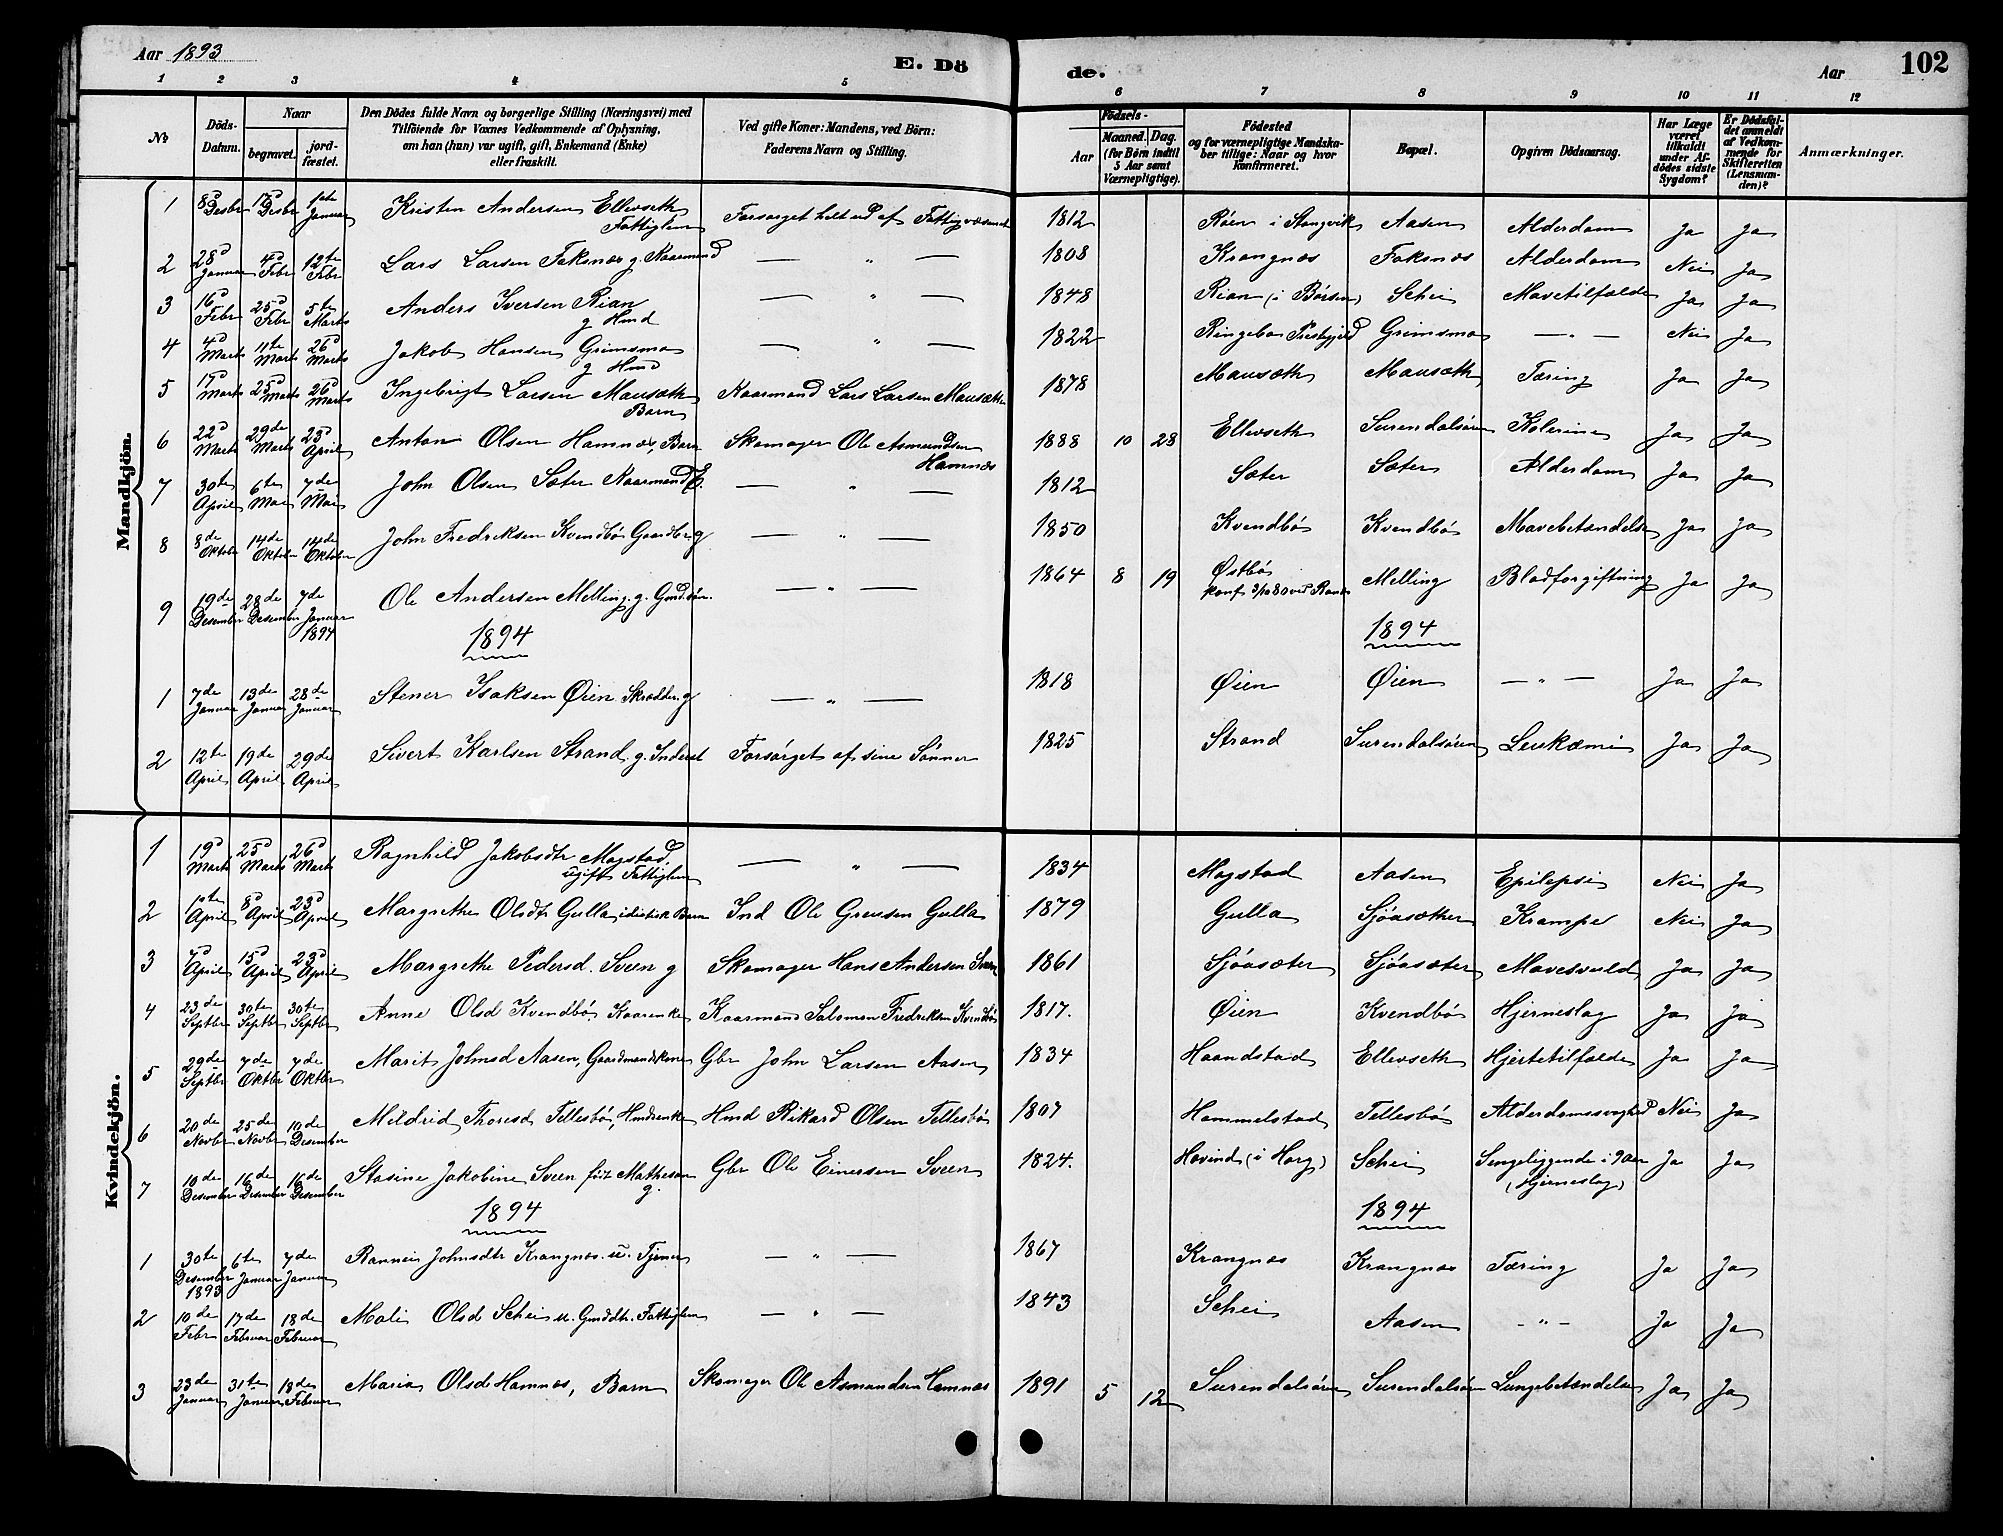 Aar 1893 E. Dö de. Aar 102
1 2 3 4 5 6 7 8 9 10 11 12
No Döds-Datum. Naar begravet. jordfæstet. Den Dödes fulde Navn og borgerlige Stilling (Næringsvei) med Tilföiende for Voxnes Vedkommende af Oplysning, om han (hun) var ugift, gift, Enkemand (Enke) eller fraskilt. Ved gifte Koner: Mandens, ved Börn: Faderens Navn og Stilling. Födsels- Aar Maaned. Dag. (for Börn indtil 5 Aar samt Værnepligtige). Födested og for værnepligtige Mandskaber tillige: Naar og hvor Konfirmeret. Bopæl. Opgiven Dödsaarsag. Har Læge været tilkaldt under Afdödes sidste Sygdom? Er Dödsfaldet anmeldt af Vedkommende for Skifteretten (Lensmanden)? Anmærkninger.
Mandkjön.
1 8d Desbr 17d Desbr 1ste Januar Kristen Andersen Ellevseth Fattiglem Forsørget helt ud af Fattigvæsenet 1812 Röen i Stangvik Aasen Alderdom Ja Ja
2 28d Januar 4d Febr 12te Febr Lars Larsen Foksnæs g. Kaarmand — " — 1808 Krangnæs Foksnæs Alderdom Nei Ja
3 16d Febr 25d Febr 5te Marts Anders Iversen Rian g Hmd — " — 1848 Rian (i Börsen) Schei Mavetilfælde Ja Ja
4 4d Marts 11te Marts 26d Marts Jakob Hansen Grimsmo g Hmd — " — 1822 Ringebo Prestegjeld Grimsmo — " — Nei Ja
5 17d Marts 25d Marts 26d Marts Ingebrigt Larsen Mausæth Barn Kaarmand Lars Larsen Mausæth 1878 Mausæth Mausæth Tæring Ja Ja
6 22d Marts 29de Marts 23d April Anton Olsen Hamnæs, Barn Skomager Ole Asmundsen Hamnæs 1888 10 28 Ellevseth Surendalsören Kolerine Ja Ja
7 30te April 6te Mai 7de Mai John Olsen Sæter Kaarmand E. — " — 1812 Sæter Sæter Alderdom Ja Ja
8 8de Oktobr 14de Oktobr 14de Oktober John Fredriksen Kvendbö Gaardbr g — " — 1850 Kvendbö Kvendbö Mavebetændelse Ja Ja
9 19de Desember 28de Desember 7de Januar 1894 Ole Andersen Melling g. Gmd.sön. — " — 1864 8 19 Østbö konf 3/10 80 ved Ranes Melling Blodforgiftning Ja Ja
1894 1894
1 7de Januar 13de Januar 28de Januar Stener Isaksen Øien Skrædder g — " — 1818 Øien Øien — " — Ja Ja
2 12te April 19de April 29de April Sivert Karlsen Strand g. Inderst Forsørget af sine Sönner 1825 Strand Surendalsören Leukæmi Ja Ja
Kvindekjön.
1 19d Marts 25d Marts 26d Marts Ragnhild Jakobsdtr Mogstad ugift Fattiglem — " — 1834 Mogstad Aasen Epilepsi Nei Ja
2 1ste April 8d April 23d April Margrethe Olsdtr Gulla idiotisk Barn Ind Ole Gresen Gulla 1879 Gulla Sjöasæther Krampe Nei Ja
3 7d April 15d April 23d April Margrethe Pedersd. Sveen g Skomager Hans Andersen Sveen 1861 Sjöasæter Sjöasæter Mavesvuld Ja Ja
4 23de Septbr 30te Septbr 30te Septbr Anne Olsd Kvendbö Kaarenke Kaarmand Salomon Fredriksen Kvendbö 1817. Øien Kvendbö Hjerneslag Ja Ja
5 29de Septbr 7de Oktbr 7de Oktbr Marit Johnsd Aasen, Gaardmandskone Gbr John Larsen Aasen 1834 Haandstad Ellevseth Hjertetilfælde Ja Ja
6 20de Novbr 25de Novbr 10de Desember Mildrid Thoresd Tellesbö, Hmdsenke Hmd Rikard Olsen Tellesbö 1807 Hommelstad Tellesbö Alderdomssvaghed Nei Ja
7 10de Desember 16de Desember 16de Desember Stasine Jakobine Sveen föd Matheson g. Gbr Ole Einersen Sveen 1824. Hovind (i Horg) Schei Sengeliggende i 9 Aar (Hjerneslag) Ja Ja
1894 1894
1 30te Desember 1893 6te Januar 7de Januar Rannei Johnsdtr Krangnæs u. Tjener — " — 1867 Krangnæs Krangnæs Tæring Ja Ja
2 10de Febr 17de Februar 18de Februar Mali Olsd Schei u. Gmddtr. Fattiglem — " — 1843 Schei Aasen — " — Ja Ja
3 23de Januar 31te Januar 18de Februar Maria Olsd Hamnæs, Barn Skomager Ole Asmundsen Hamnæs 1891 5 12 Surendalsören Surendalsören Lungebetændelse Ja Ja